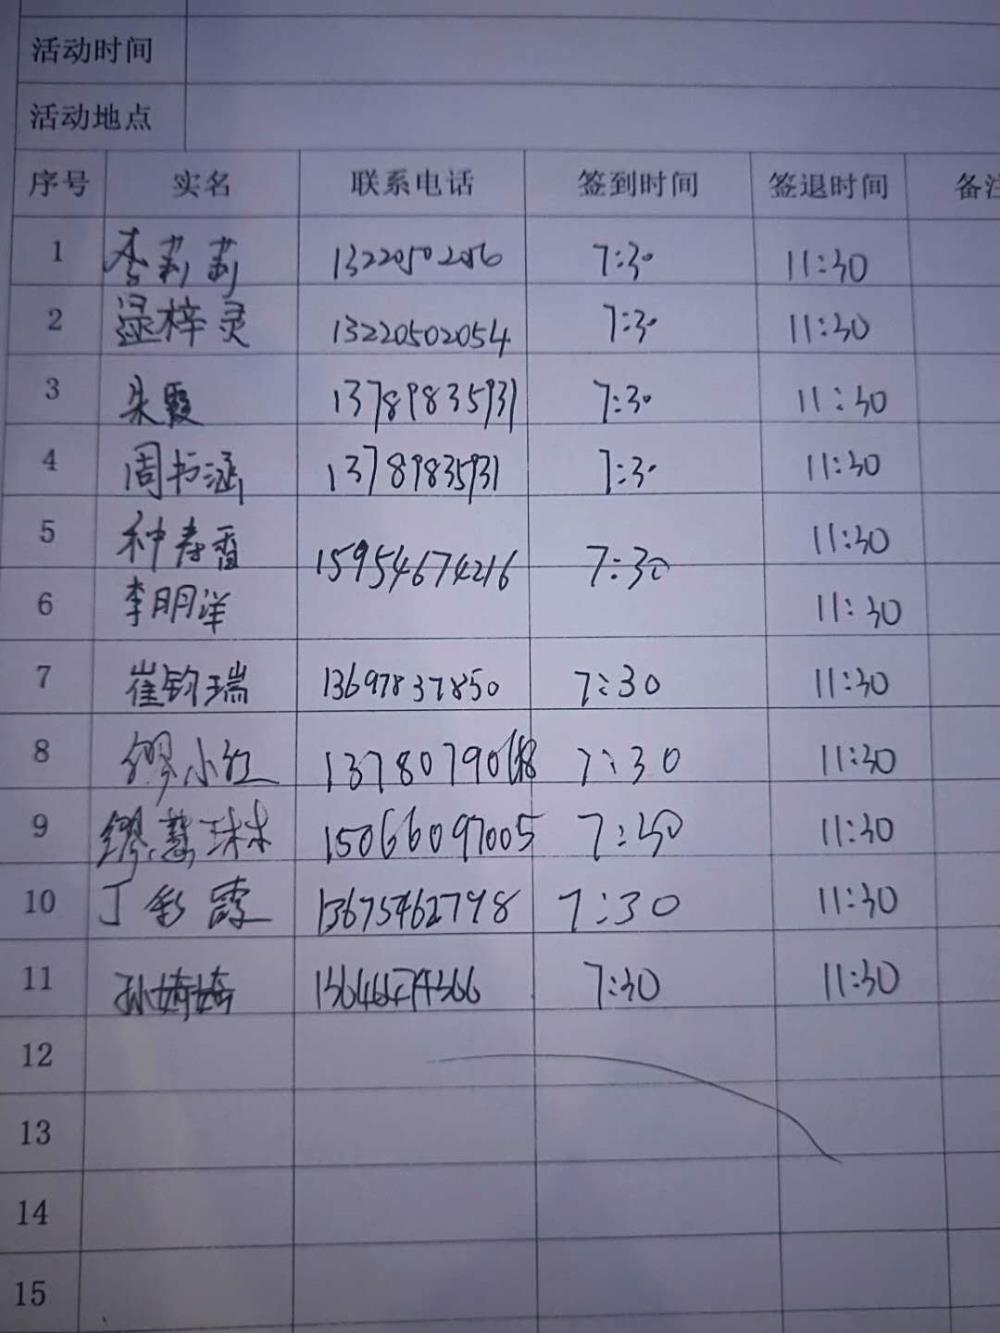 活动时间
活动地点
序号 实名 联系电话 签到时间 签退时间 备注
1 李莉莉 13220502056 7:30 11:30
2 梓灵 13220502054 7:30 11:30
3 朱霞 13789835931 7:30 11:30
4 周书涵 13789835931 7:30 11:30
5 种寿香 15954674216 7:30 11:30
6 李明洋 11:30
7 崔钧瑞 13697837850 7:30 11:30
8 缪小红 7:30 11:30
9 缪慧琳 15066097005 7:30 11:30
10 丁彩霞 13675462798 7:30 11:30
11 孙婷婷 7:30 11:30
12
13
14
15